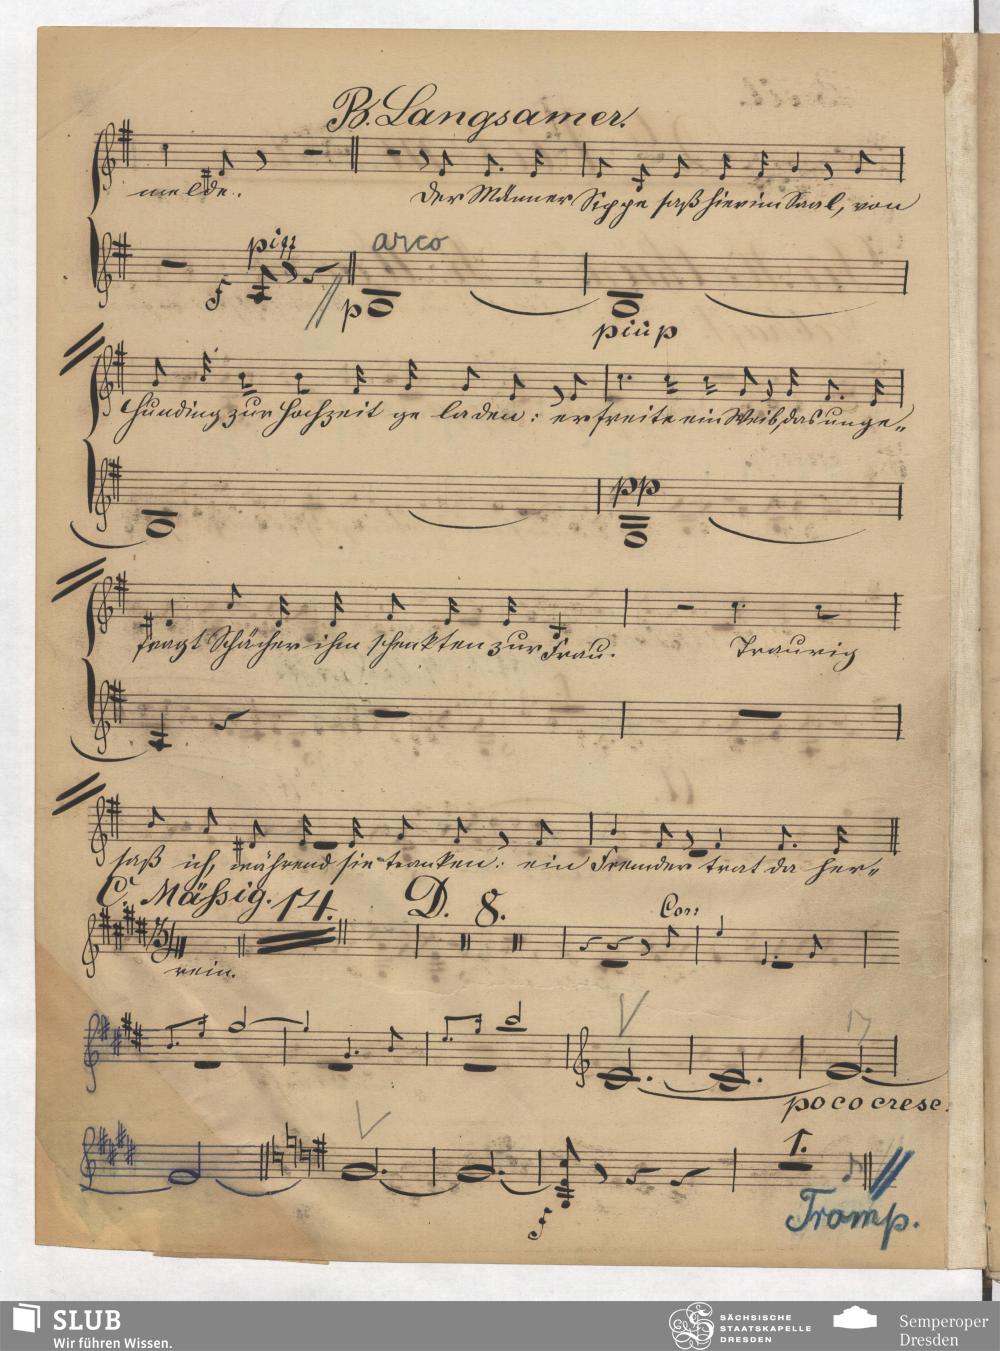 B. Langsamer.
melde. Der Männer Sippe saß hier im Saal, von
pizz arco
f p più p
Hunding zur Hochzeit geladen: er freite ein Weib, das unge-
pp
fragt Schächer ihm schenkten zur Frau. Traurig
saß ich, während sie tranken: ein Fremder trat da her-
C. Mässig. 14. D. 8. Cor:
rein.
V 17
poco cresc.
V 1.
f Tromp.
SLUB
Wir führen Wissen.
SÄCHSISCHE
STAATSKAPELLE
DRESDEN
Semperoper
Dresden